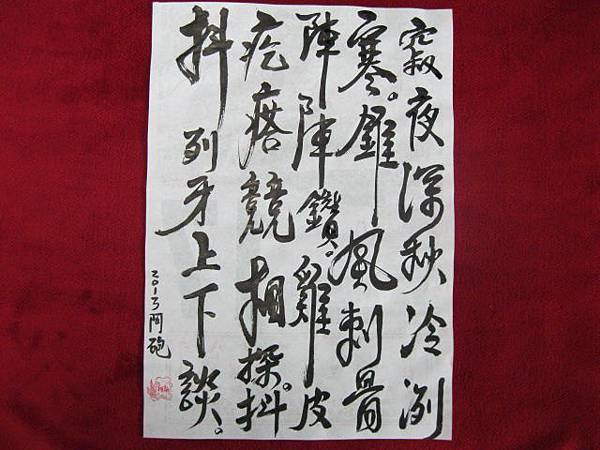 寂夜深秋冷洌
寒。錐風刺骨
陣陣鑽。雞皮
疙瘩競相探。抖
抖列牙上下談。
2013阿砲